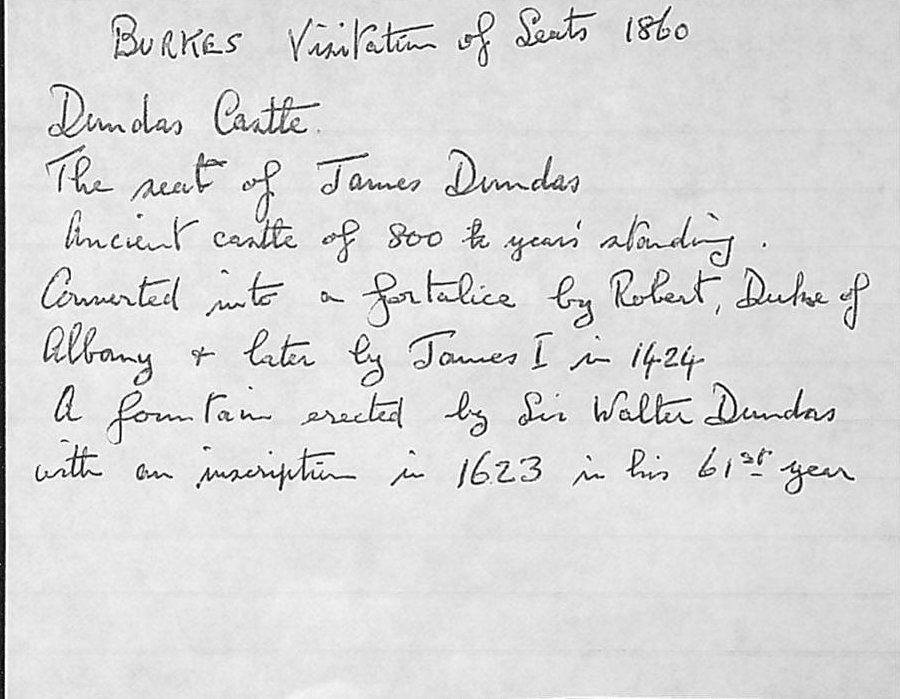 BURKES Visitation of Seats 1860
Dundas Castle.
The seat of James Dundas
Ancient castle of 800 years' standing.
Converted into a fortalice by Robert, Duke of
Albany + later by James I in 1424
A fountain erected by Sir Walter Dundas
with an inscription in 1623 in his 61st year